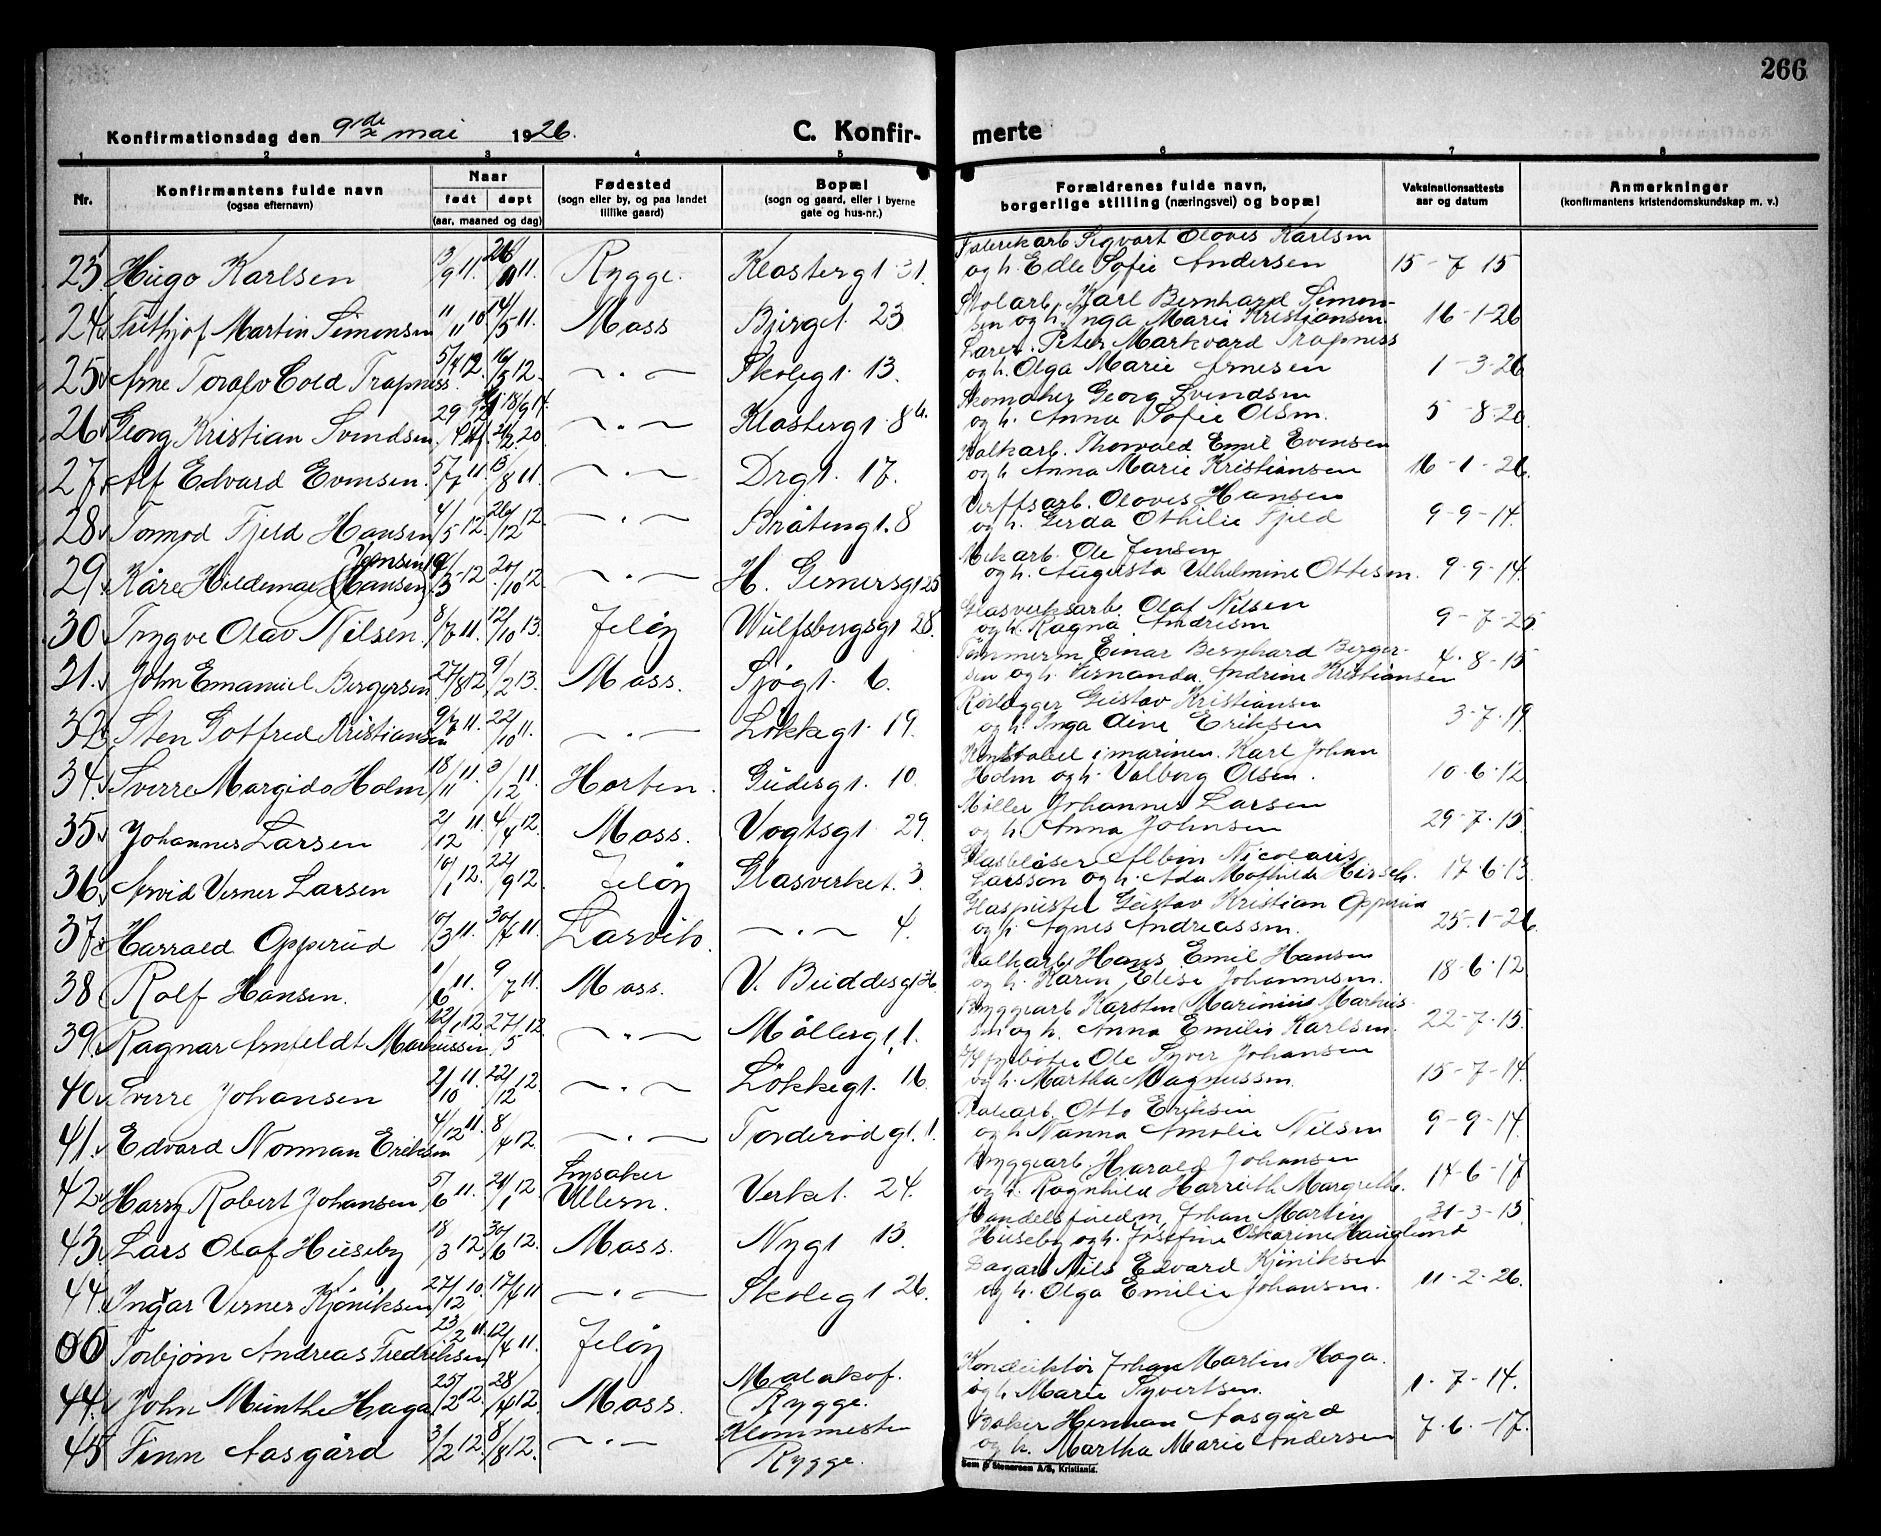 266
Konfirmationsdag den 9de mai 1926.
C. Konfir-
merte
1 2 3 4 5 6 7 8
Nr.
Konfirmantens fulde navn
(ogsaa efternavn)
Naar
født døpt
(aar, maaned og dag)
Fødested
(sogn eller by, og paa landet
tillike gaard)
Bopæl
(sogn og gaard, eller i byerne
gate og hus-nr.)
Forældrenes fulde navn,
borgerlige stilling (næringsvei) og bopæl
Vaksinationsattests
aar og datum
Anmerkninger
(konfirmantens kristendomskundskap m. v.)
23 Hugo Karlsen 13/9 11. Rygge. Klostergt. 31.
Sigvart Oloves Karlsen
og h. Edle Sofie Andersen 15-7-15
24 Frithjof Martin Simonsen 11/11 10 14/5 11. Moss Bjerget. 23
Karl Bernhard Simon-
sen og h. Inga Marie Kristiansen 16-1-26
25 Arne Toralv Cold Trapness. 5/4 12. 16/5 12. — " — Skolegt. 13.
Peter Markvard Trapness
og h. Olga Marie Arnesen 1-3-26
26 Georg Kristian Svendsen. — " — Klostergt. 8b.
Skomaker Georg Svendsen
og h. Anna Sofie Olsen. 5-8-20
27 Alf Edvard Evensen. 5/7 11. 13/8 11. — " — Drgt. 17.
Kalkarb. Thorvald Emil Evensen
og h. Anna Marie Kristiansen 16-1-26.
28 Tormod Fjeld Hansen 4/5 12. 26/12 12. — " — Bråtengt. 8
Verftsarb. Oloves Hansen
og h. Gerda Othilie Fjeld 9-9-14.
29 Kåre Hildemar Jensen (Hansen) 19/3-12 20/10 12. — " — H. Gernersgt 25
Mek arb. Ole Jensen
og h. Augusta Vilhelmine Ottesen. 9-9-14.
30 Trygve Olav Nilsen. 8/7 11. 12/10 13. Jeløy Wulfsbergsgt 28.
Glasverksarb. Olaf Nilsen
og h. Ragna Andresen 9-7-25
31. John Emanuel Bergersen 27/8 12. 9/2 13. Moss. Sjøgt. 6.
Tømmerm Einar Bernhard Berger-
sen og h. Vernanda Andrine Kristiansen 4-8-15
32 Sten Gotfred Kristiansen 9/7 11. 22/10 11. — " — Løkkegt. 19.
Rørlegger Gustav Kristiansen
og h. Inga Aine Eriksen 3-7-19
34. Sverre Margido Holm 18/11 11. 3/12 11. Horten. Gudesgt. 10.
Konstabel i marinen. Karl Johan
Holm og h. Valborg Olsen. 10-6-12.
35. Johannes Larsen 2/12 11. 4/4 12. Moss. Vogtsgt. 29.
Møller Johannes Larsen
og h. Anna Johnsen 29-7-15.
36. Arvid Verner Larsen 10/1 12. 22/9 12. Jeløy Glasverket. 3.
Glasblåser Albin Nicolaus
Larsson og h. Ada Mathilde Hirsch. 17-6-13.
37. Harrald Opperud 10/3 11. 30/4 11. Larvik. — " — 4.
Glaspuster Gustav Kristian Opperud
og h. Agnes Andreassen. 25-1-26.
38 Rolf Hansen. 1/6 11. 9/7 11. Moss. V. Buddesgt
Kalkarb. Hans Emil Hansen
og h. Karen Elise Johannesen. 18-6-12
39. Ragnar Arnfeldt Markussen 12/1 12. 27/5 12. — " — Møllergt. 1.
Bryggearb Karsten Marinius Markus-
sen og h. Anna Emilie Karlsen. 22-7-15.
40. Sverre Johansen 2/10 11. 22/12 12. — " — Løkkegt. 16.
Ole Syver Johansen
og h. Martha Magnussen. 15-7-14.
41. Edvard Norman Eriksen 4/12 11. 8/4 12. — " — Torderød gt. 1.
Otto Eriksen
og h Nanna Amalie Nilsen 9-9-14.
42. Harry Robert Johansen 5/6 11. 21/1 12 Lysaker
Ullern. Verket. 24.
Bryggearb. Harald Johansen
og h. Ragnhild Harrieth Margrethe. 14-6-17
43. Lars Olaf Huseby 18/3 12. 30/6 12. Moss. Nygt 13.
Handelsfuldm. Johan Martin
Huseby og h. Josefine Oskarine Hauglund 31-3-15
44. Ingvar Verner Kjøniksen 27/12 10. 17/4 11 — " — Skolegt 26.
Nils Edvard Kjøniksen
og h. Olga Emilie Johansen. 11-2-26.
00 Torbjørn Andreas Fredriksen 23/2 11. 12/4 11. Jeløy
44. John Munthe Haga 25/2 12. 28/4 12. Moss. Malakof.
Rygge.
Konduktør Johan Martin Haga.
og h. Marie Syvertsen. 1-7-14.
45 Finn Aasgård 3/2 12. 8/8 12. — " — Klommesten
Rygge.
Baker Herman Aasgård
og h. Martha Marie Andersen 7-6-17.
Sem & Stenersen A/S, Kristiania.